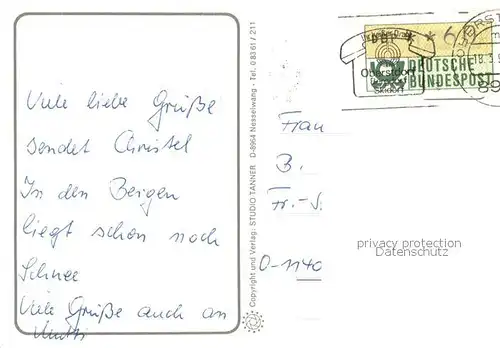 Viele liebe Grüße
sendet Christel
In den Bergen
liegt schon noch
Schnee
Viele Grüße auch an
Mutti
Copyright und Verlag: STUDIO TANNER D-8964 Nesselwang - Tel. 0 83 61 / 2 11
DBP
Oberstdorf
Skidorf
DEUTSCHE
BUNDESPOST
18.3.9
89
Frau
B.
Fr.-S
O-1140
privacy protection
Datenschutz